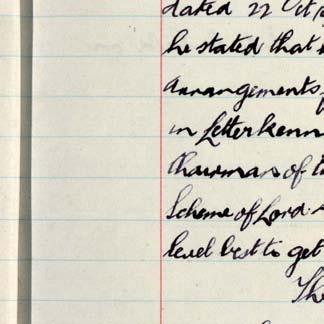 dated 22 Oct
he stated that
arrangements
in Letterkenn
Chairman of t
Scheme of Lord
level best to get
Th